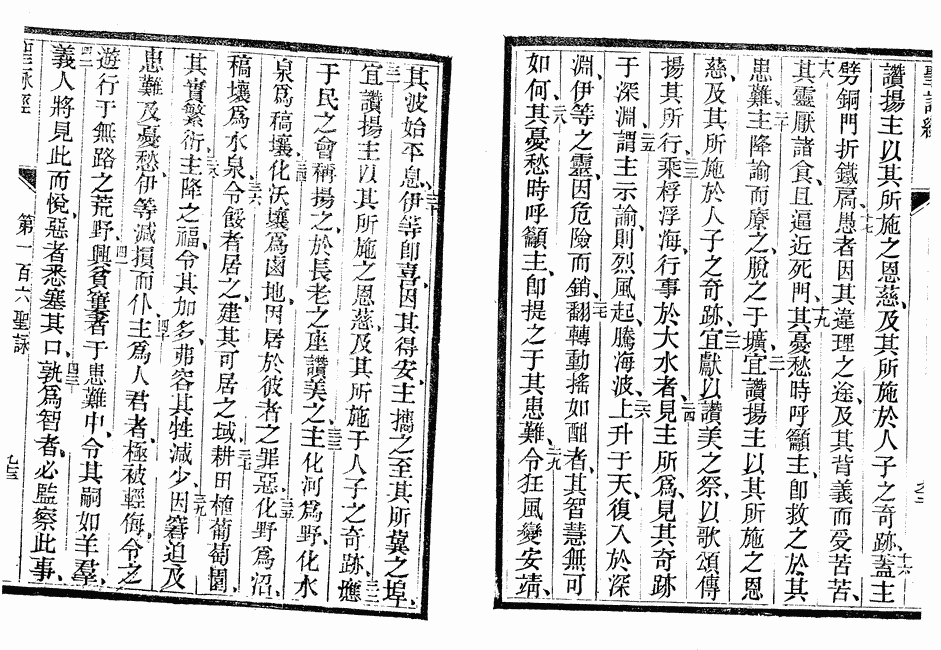 聖詠經
讚揚主以其所施之恩慈、及其所施於人子之奇跡、十六蓋主
劈銅門折鐵扃、十七愚者因其違理之途、及其背義而受苦苦、
十八其靈厭諸食且逼近死門、十九其憂愁時呼籲主、卽救之於其
患難、二十主降諭而療之、脫之于壙、二一宜讚揚主以其所施之恩
慈、及其所施於人子之奇跡、二二宜獻以讚美之祭、以歌頌傳
揚其所行、二三乘桴浮海、行事於大水者、二四見主所爲、見其奇跡
于深淵、二五謂主示諭、則烈風起、騰海波、二六上升于天、復入於深
淵、伊等之靈、因危險而銷、二七翻轉動搖如酣者、其智慧無可
如何、二八其憂愁時呼籲主、卽提之于其患難、二九令狂風變安靖、
其波始平息、三十伊等卽喜、因其得安、主攜之至其所冀之埠、
三一宜讚揚主以其所施之恩慈、及其所施于人子之奇跡、三二應
于民之會稱揚之、於長老之座讚美之、三三主化河爲野、化水
泉爲稿壤、三四化沃壤爲鹵地、因居於彼者之罪惡、三五化野爲沼、
稿壤爲水泉、三六令餒者居之、建其可居之域、三七耕田植葡萄園、
其實繁衍、三八主降之福、令其加多、弗容其牲減少、三九因窘迫及
患難及憂愁、伊等減損而仆、四十主爲人君者、極被輕侮、令之
遊行于無路之荒野、四一興貧窶者于患難中、令其嗣如羊羣、
四二義人將見此而悅、惡者悉塞其口、四三孰爲智者、必監察此事、
聖詠經
第一百六聖詠
九三